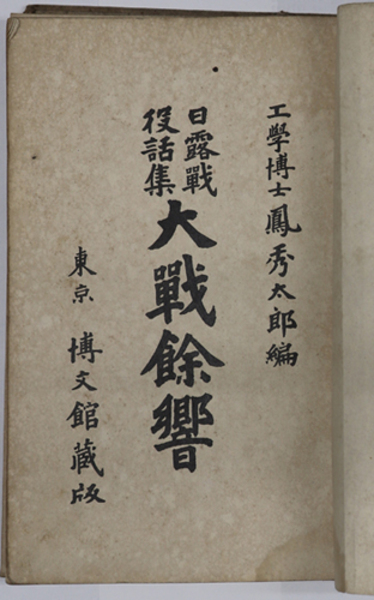 工學博士鳳秀太郎編
日露戰
役話集
大戰餘響
東京 博文館藏版